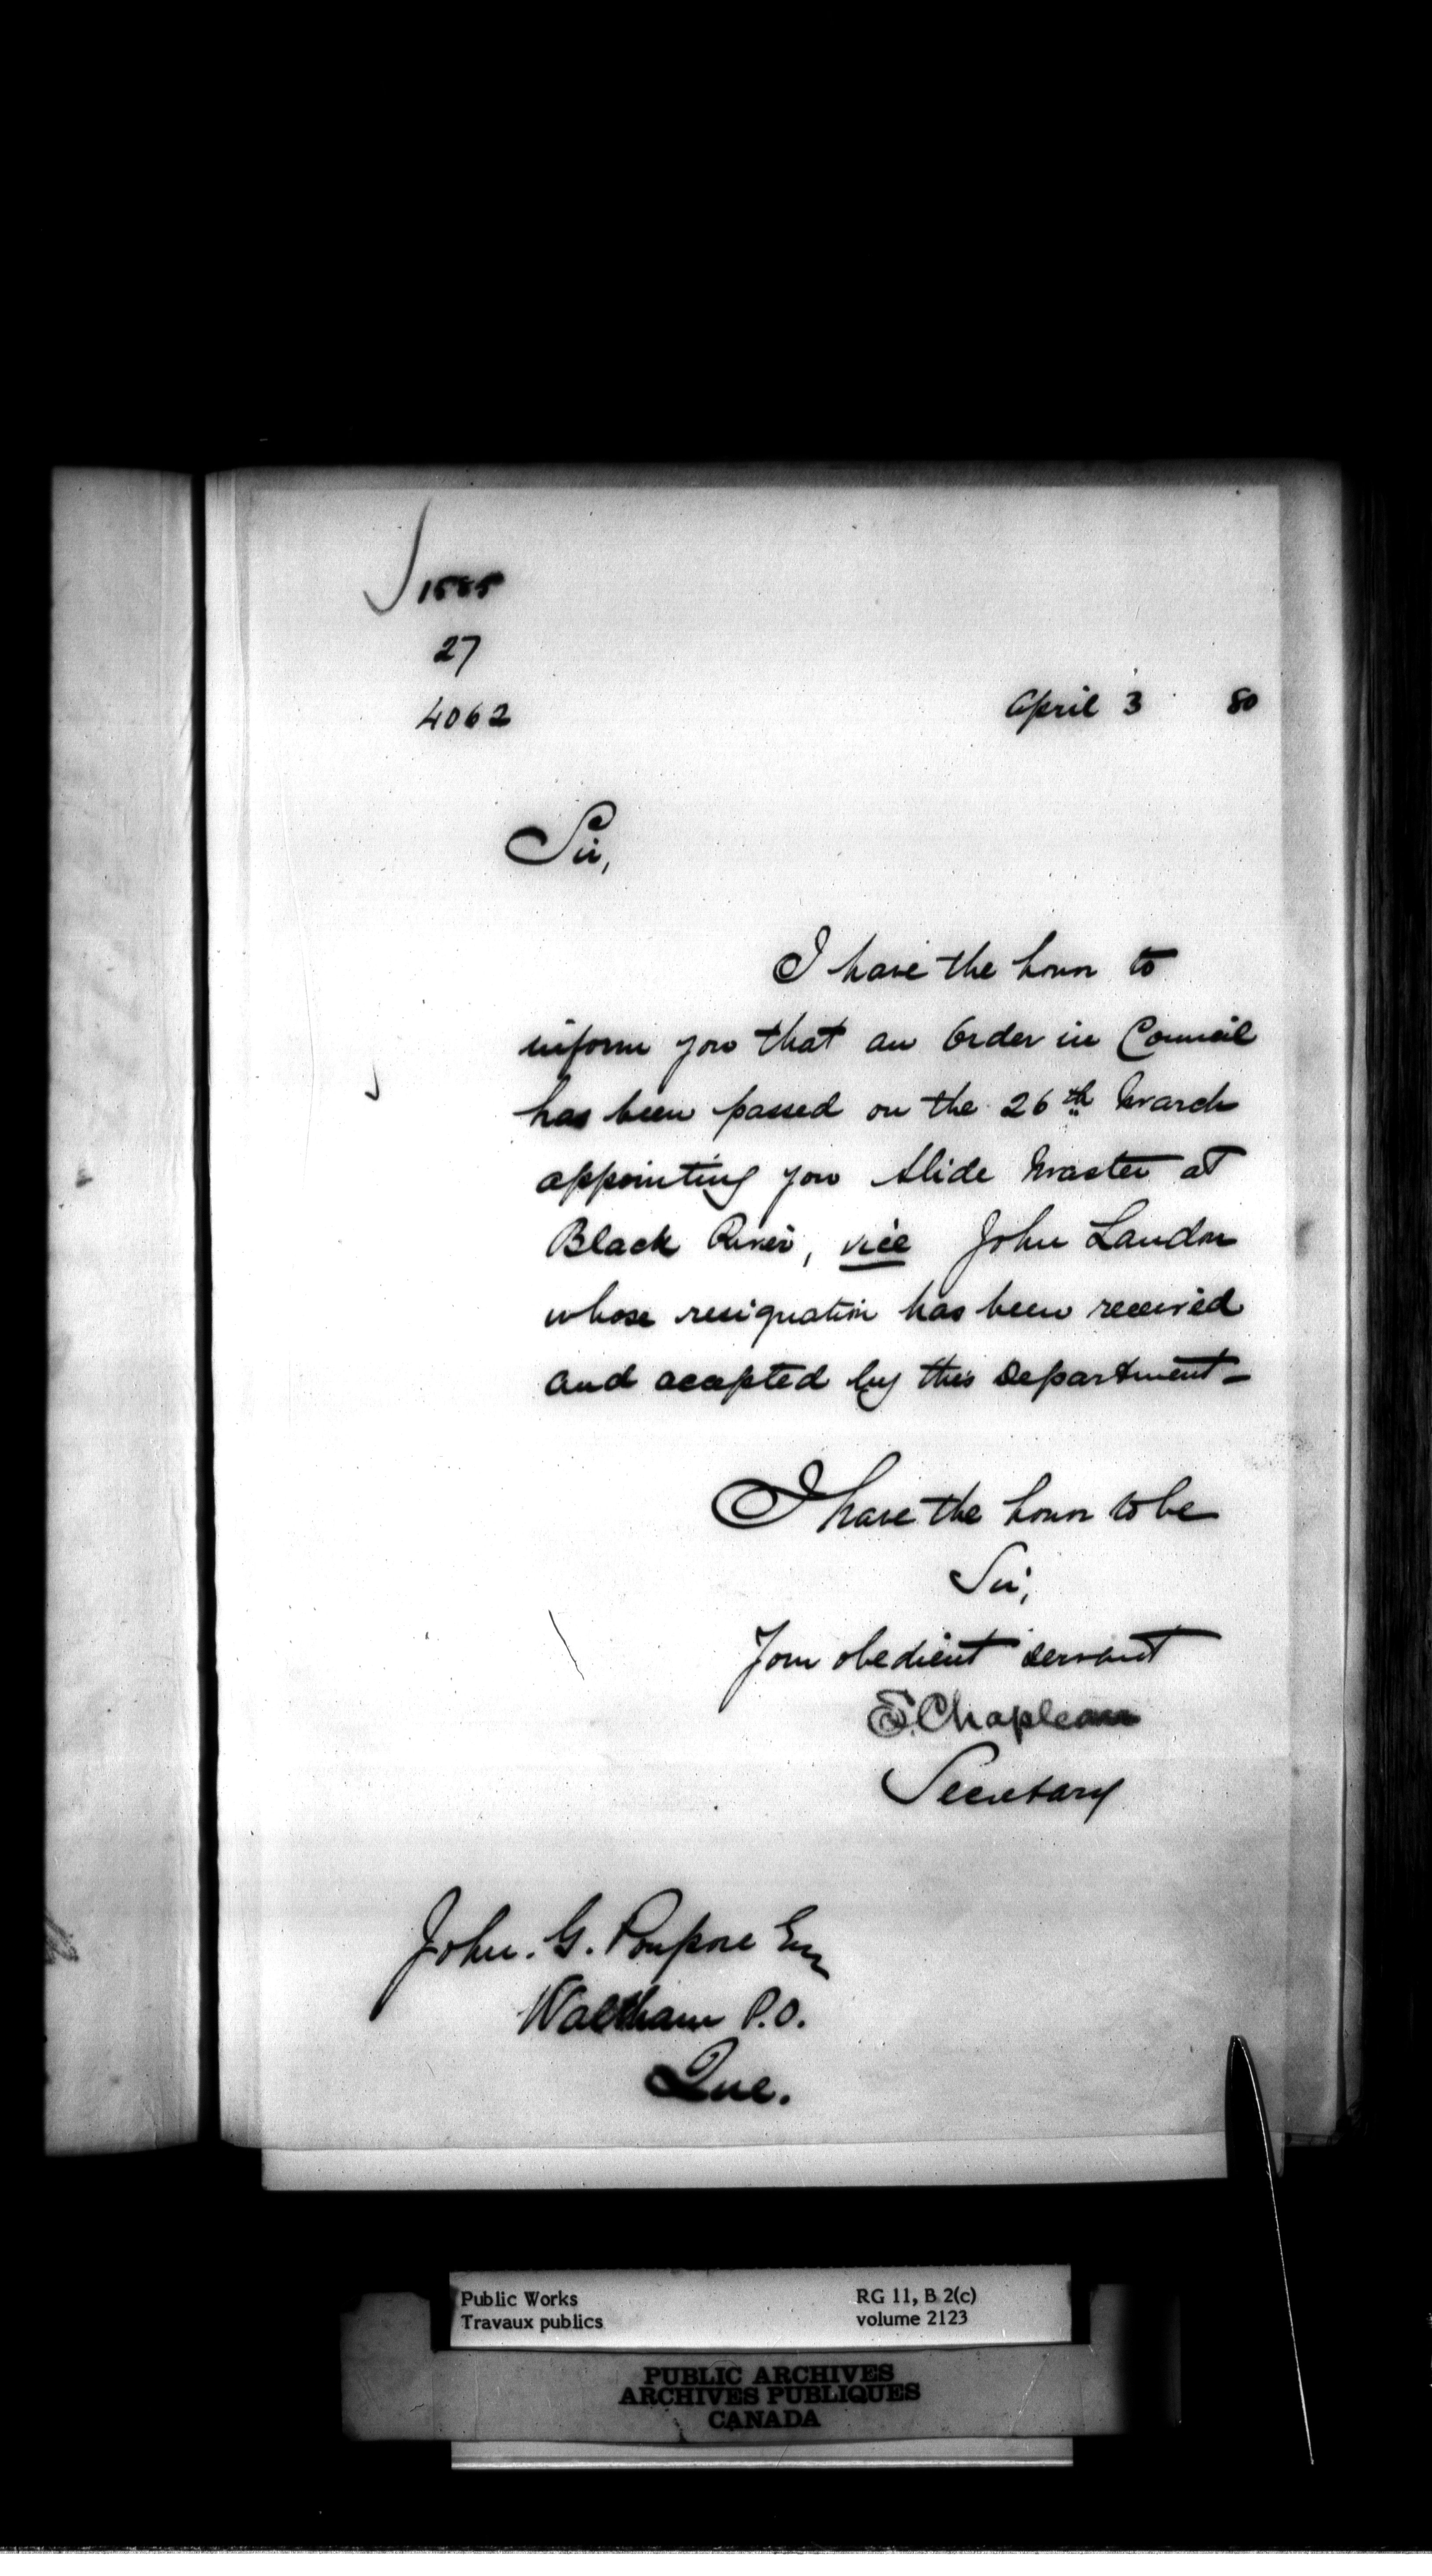 27
4062
April 3 80
Sir,
I have the honor to
inform you that an Order in Council
has been passed on the 26th March
appointing you Slide Master at
Black River, vice John Landon
whose resignation has been received
and accepted by this Department -
I have the honor to be
Sir,
Your obedient servant
E. Chapleau
Secretary
John. G. Poupore Esq
Waltham P.O.
Que.
Public Works RG 11, B 2(c)
Travaux publics volume 2123
PUBLIC ARCHIVES
ARCHIVES PUBLIQUES
CANADA